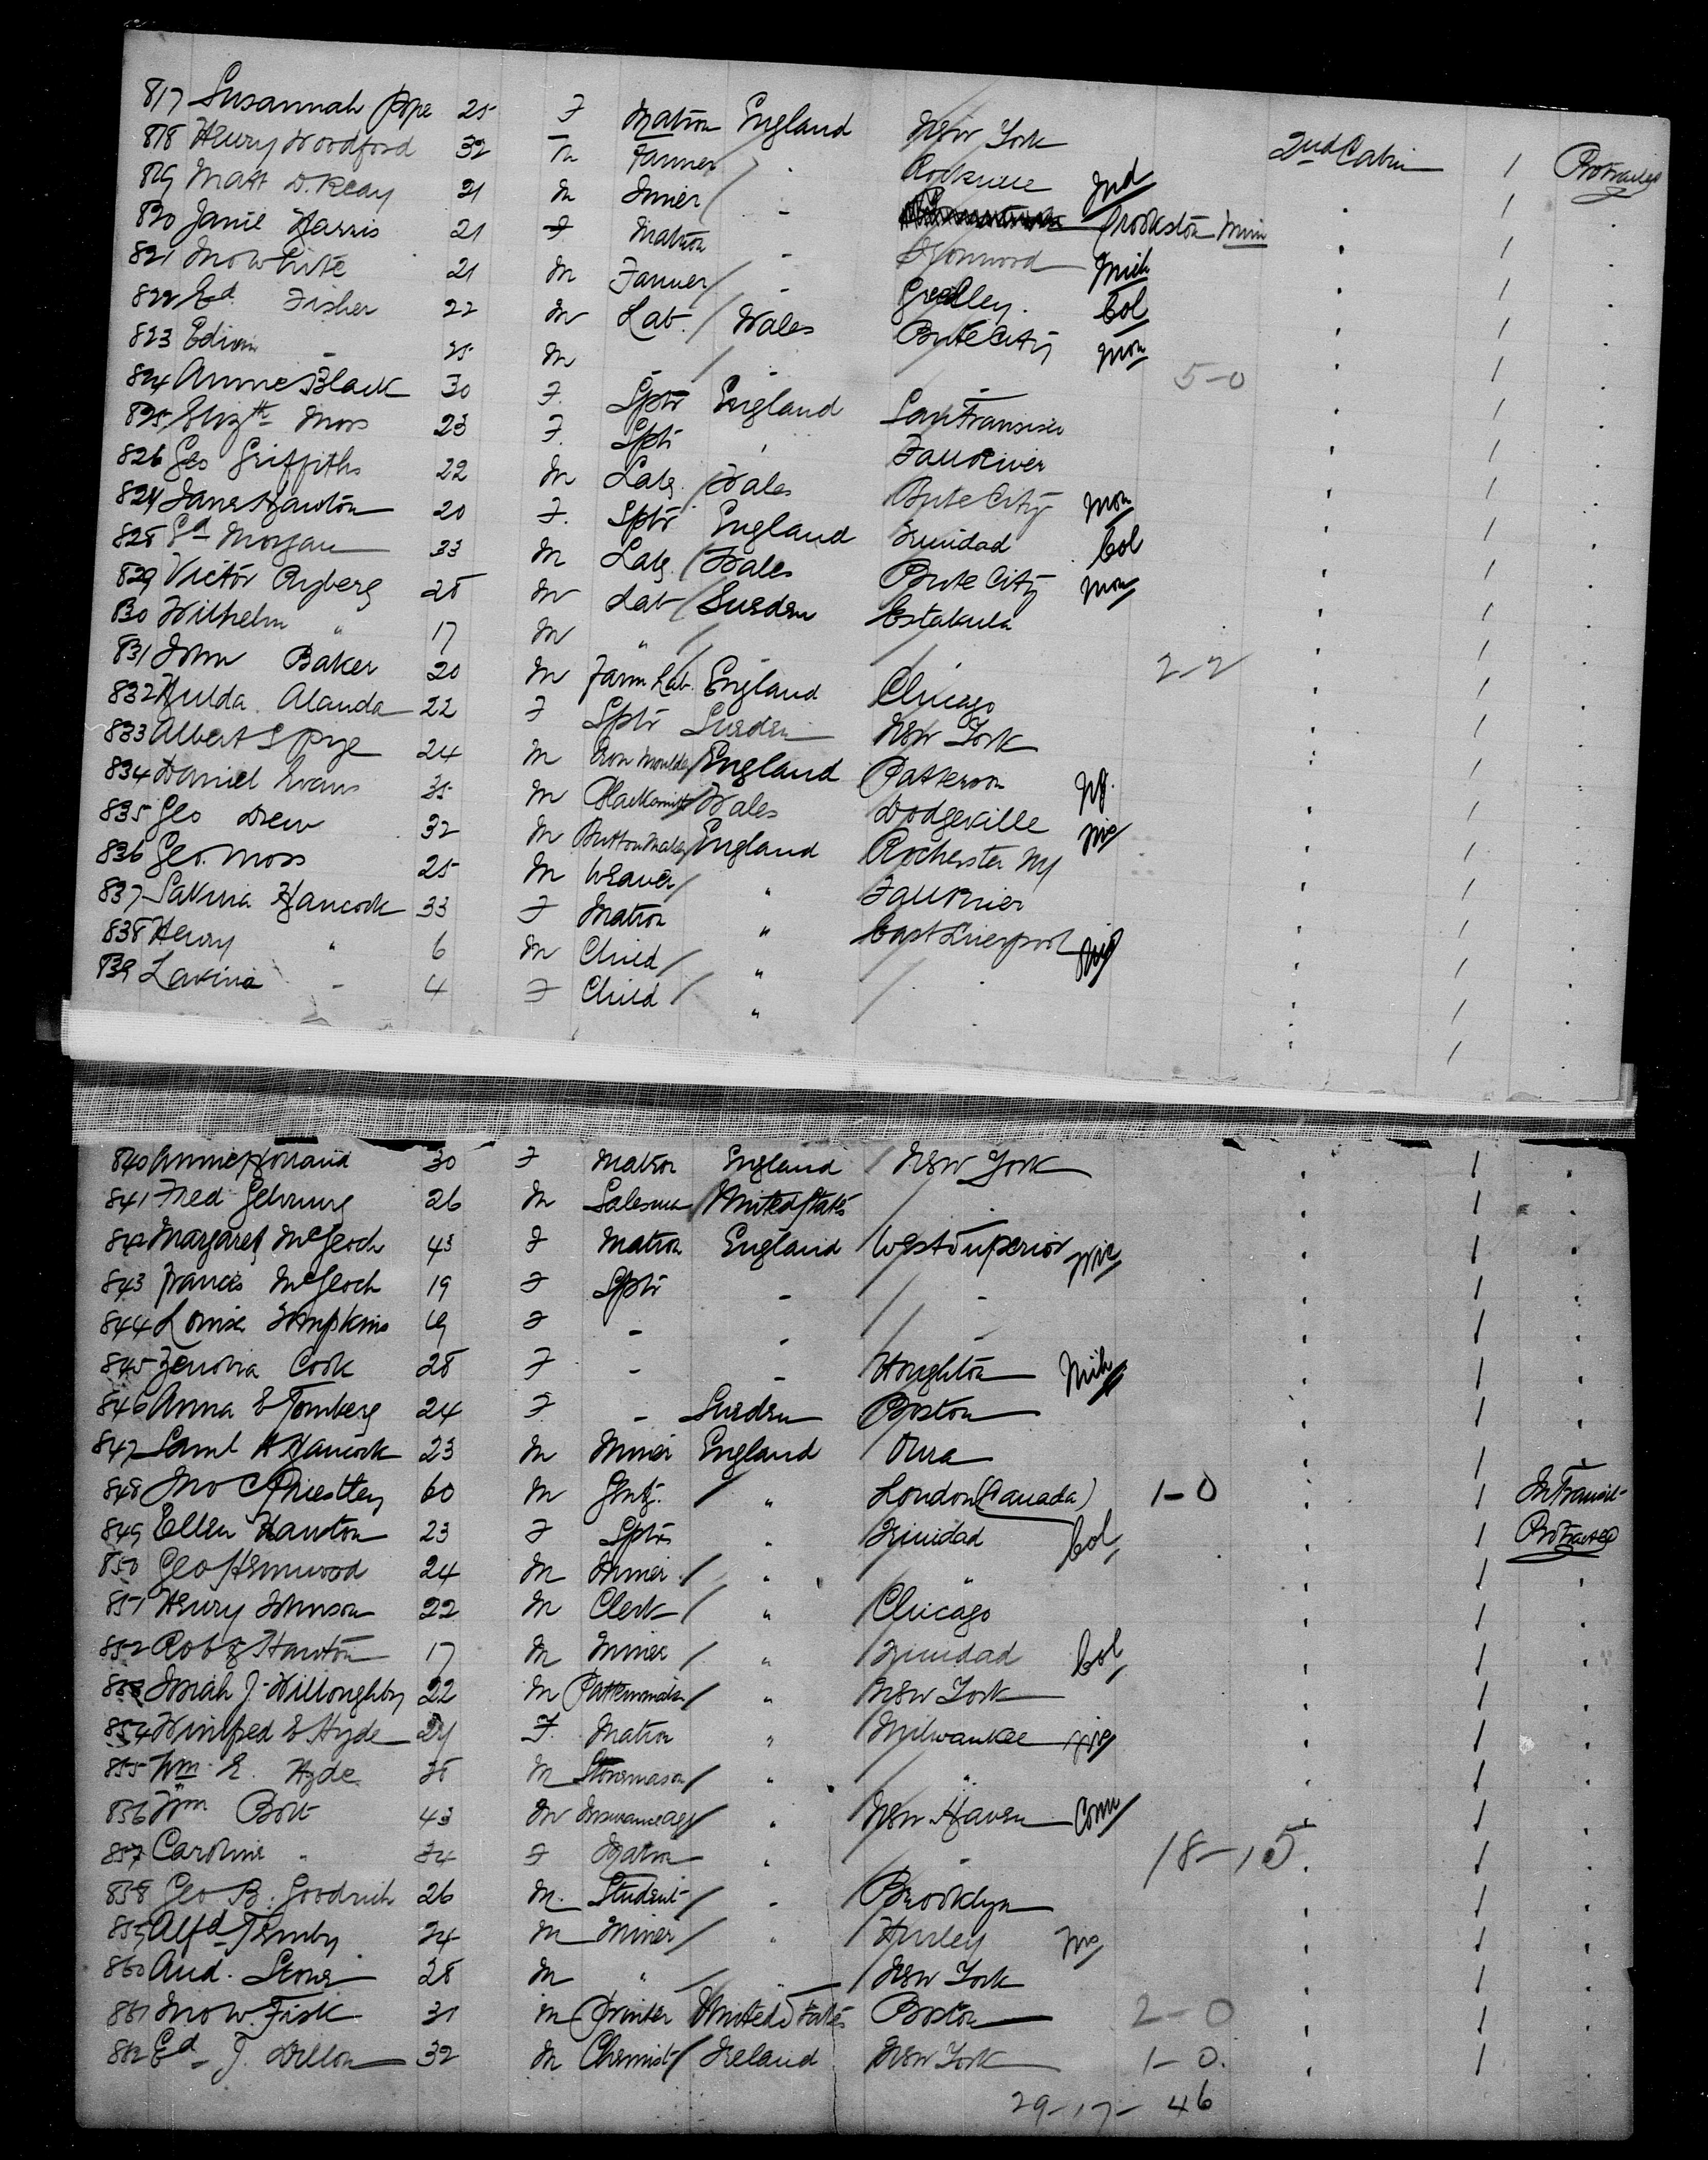 817 Susannah Pope 25 F Matron England New York 2nd Cabin 1 Protracted
818 Henry Woodford 32 M Farmer / " Rockville Ind 1
819 Matt D. Keay 21 M Miner / " Crookston Minn 1
820 Janie Harris 21 F Matron " Ironwood Mich 1
821 Jno White 21 M Farmer / " Greeley Col 1
822 Ed. Fisher 22 M Lab. / Wales Bute City Mon 1
823 Edwin " 25 M " / " " 5-0 1
824 Annie Black 30 F. Sptr England San Fransisco 1
825 Elizth Moss 23 F. Sptr " Fall River 1
826 Geo Griffiths 22 M Labr. / Wales Bute City Mon 1
827 Jane Hawton 20 F. Sptr England Trinidad Col 1
828 Ed Morgan 33 M Labr. / Wales Bute City Mon 1
829 Victor Ryberg 28 M Lab / Sweden 1
830 Wilhelm " 17 M " / " " 1
831 John Baker 20 M Farm Lab. England Chicago 2-2 1
832 Hulda Alanda 22 F Sptr Sweden New York 1
833 Albert S Pye 24 M Iron Moulder / England Patterson NJ. 1
834 Daniel Evans 35 M Blacksmith / Wales Dodgeville Wis 1
835 Geo Drew 32 M Button Maker England Rochester NY 1
836 Geo. Moss 25 M Weaver / " Fall River 1
837 Hancock 33 F Matron " East Liverpool 1
838 Henry " 6 M Child / " 1
839 Lavinia " 4 F Child / " 1
840 Annie Holland 30 F Matron England / New York 1
841 Fred 26 M Salesman / United States / " 1
842 Margaret McGeoch 43 F Matron England West Superior Wis 1
843 Frances McGeoch 19 F Sptr " / " 1
844 Louisa Tompkins 19 F " " / " 1
845 Zenobia Cook 28 F " " Houghton Mich 1
846 Anna E Tornberg 24 F " Sweden Boston 1
847 Saml H Hancock 23 M Miner England 1
848 Jno C Priestley 60 M Gent. / " London (Canada) 1-0 1 In Transit
849 Ellen Hawton 23 F Sptr " Trinidad Col 1 Protracted
850 Geo Hennwood 24 M Miner / " " 1
851 Henry Johnson 22 M Clerk / " Chicago 1
852 Robt Hawton 17 M Miner / " Trinidad Col 1
853 J. Willoughby 22 M Patternmaker / " New York 1
854 Winifred E Hyde 24 F. Matron " Milwaukee Wis 1
855 Wm E. Hyde 28 M Stonemason / " / " 1
856 Wm Bott 43 M Insurance Agt / " New Haven Conn 1
857 Caroline " 34 F Matron " / " 18-15 1
858 Geo B. Goodrich 26 M. Student / " Brooklyn 1
859 Alfd Tremby 24 M Miner / " Hurley Wis 1
860 And. Stone 28 M " / " New York 1
861 Jno W. Fisk 31 M Printer United States Boston 2-0 1
862 Ed J. Dillon 32 M Chemist / Ireland New York 1-0. 1
29-17-46